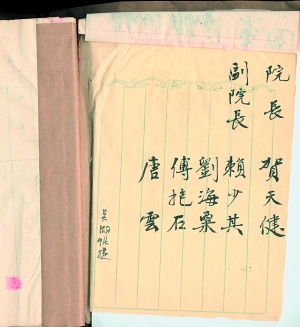 院長 賀天健
副院長 賴少其
劉海粟
傅抱石
唐雲
吴湖帆擬